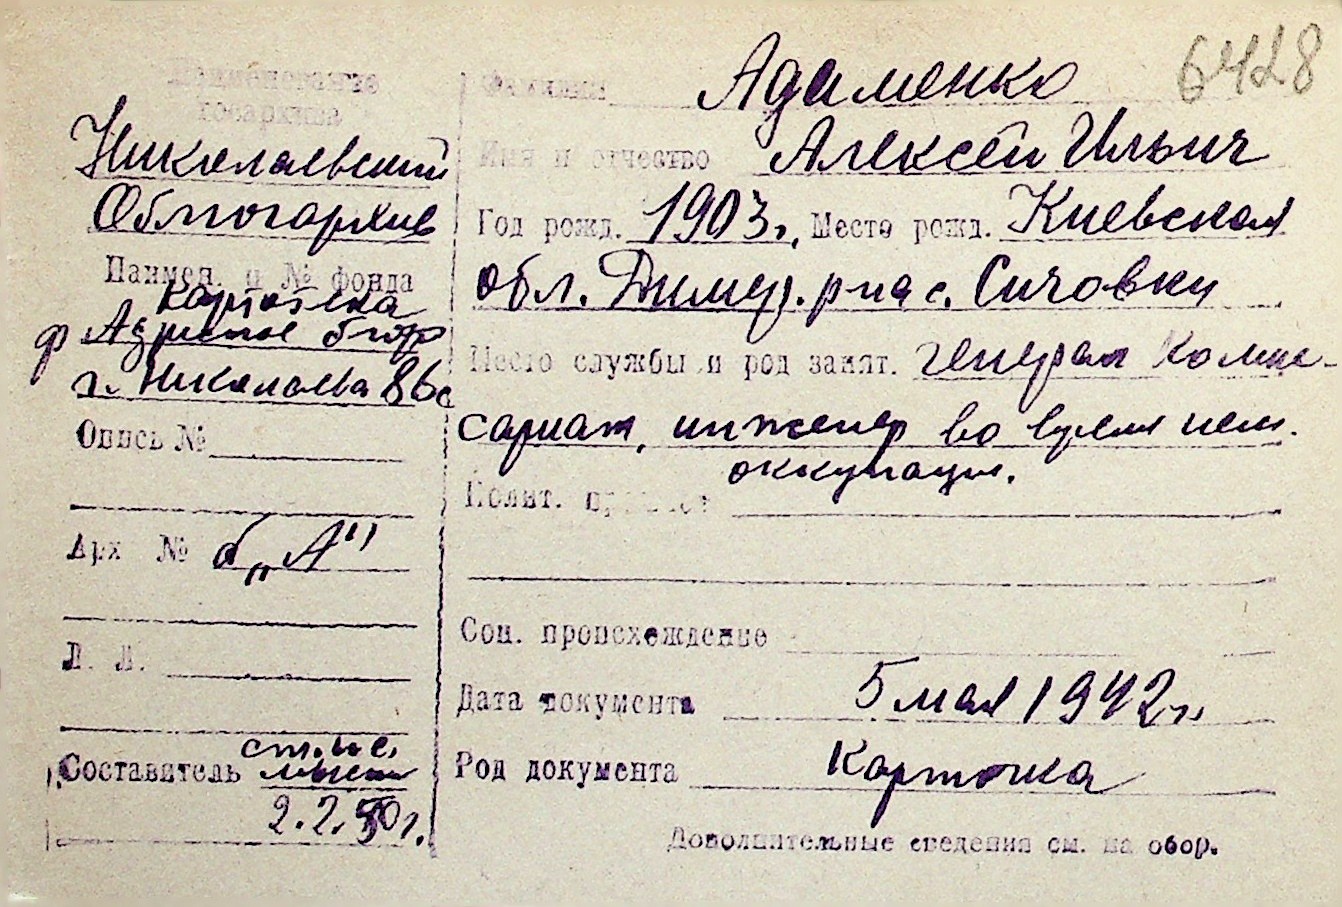 6428
Наименование
госархива
Николаевский
Облгосархив
Наимен. и № фонда
Картотека
ф Адресное бюро
г. Николаева
Опись №
Арх № б„А"
Л. Л.
Составитель ст. н. с.
2.2.50 г.
Фамилия Адаменко
Имя и отчество Алексей Ильич
Год рожд. 1903 г., Место рожд. Киевская
обл. Димер. р-на с. Сичовки
Место службы и род занят. генерал Комис-
сариат, инженер во время нем.
оккупации.
Полит.
Соц. происхождение
Дата документа 5 мая 1942 г.
Род документа Карточка
Дополнительные сведения см. на обор.